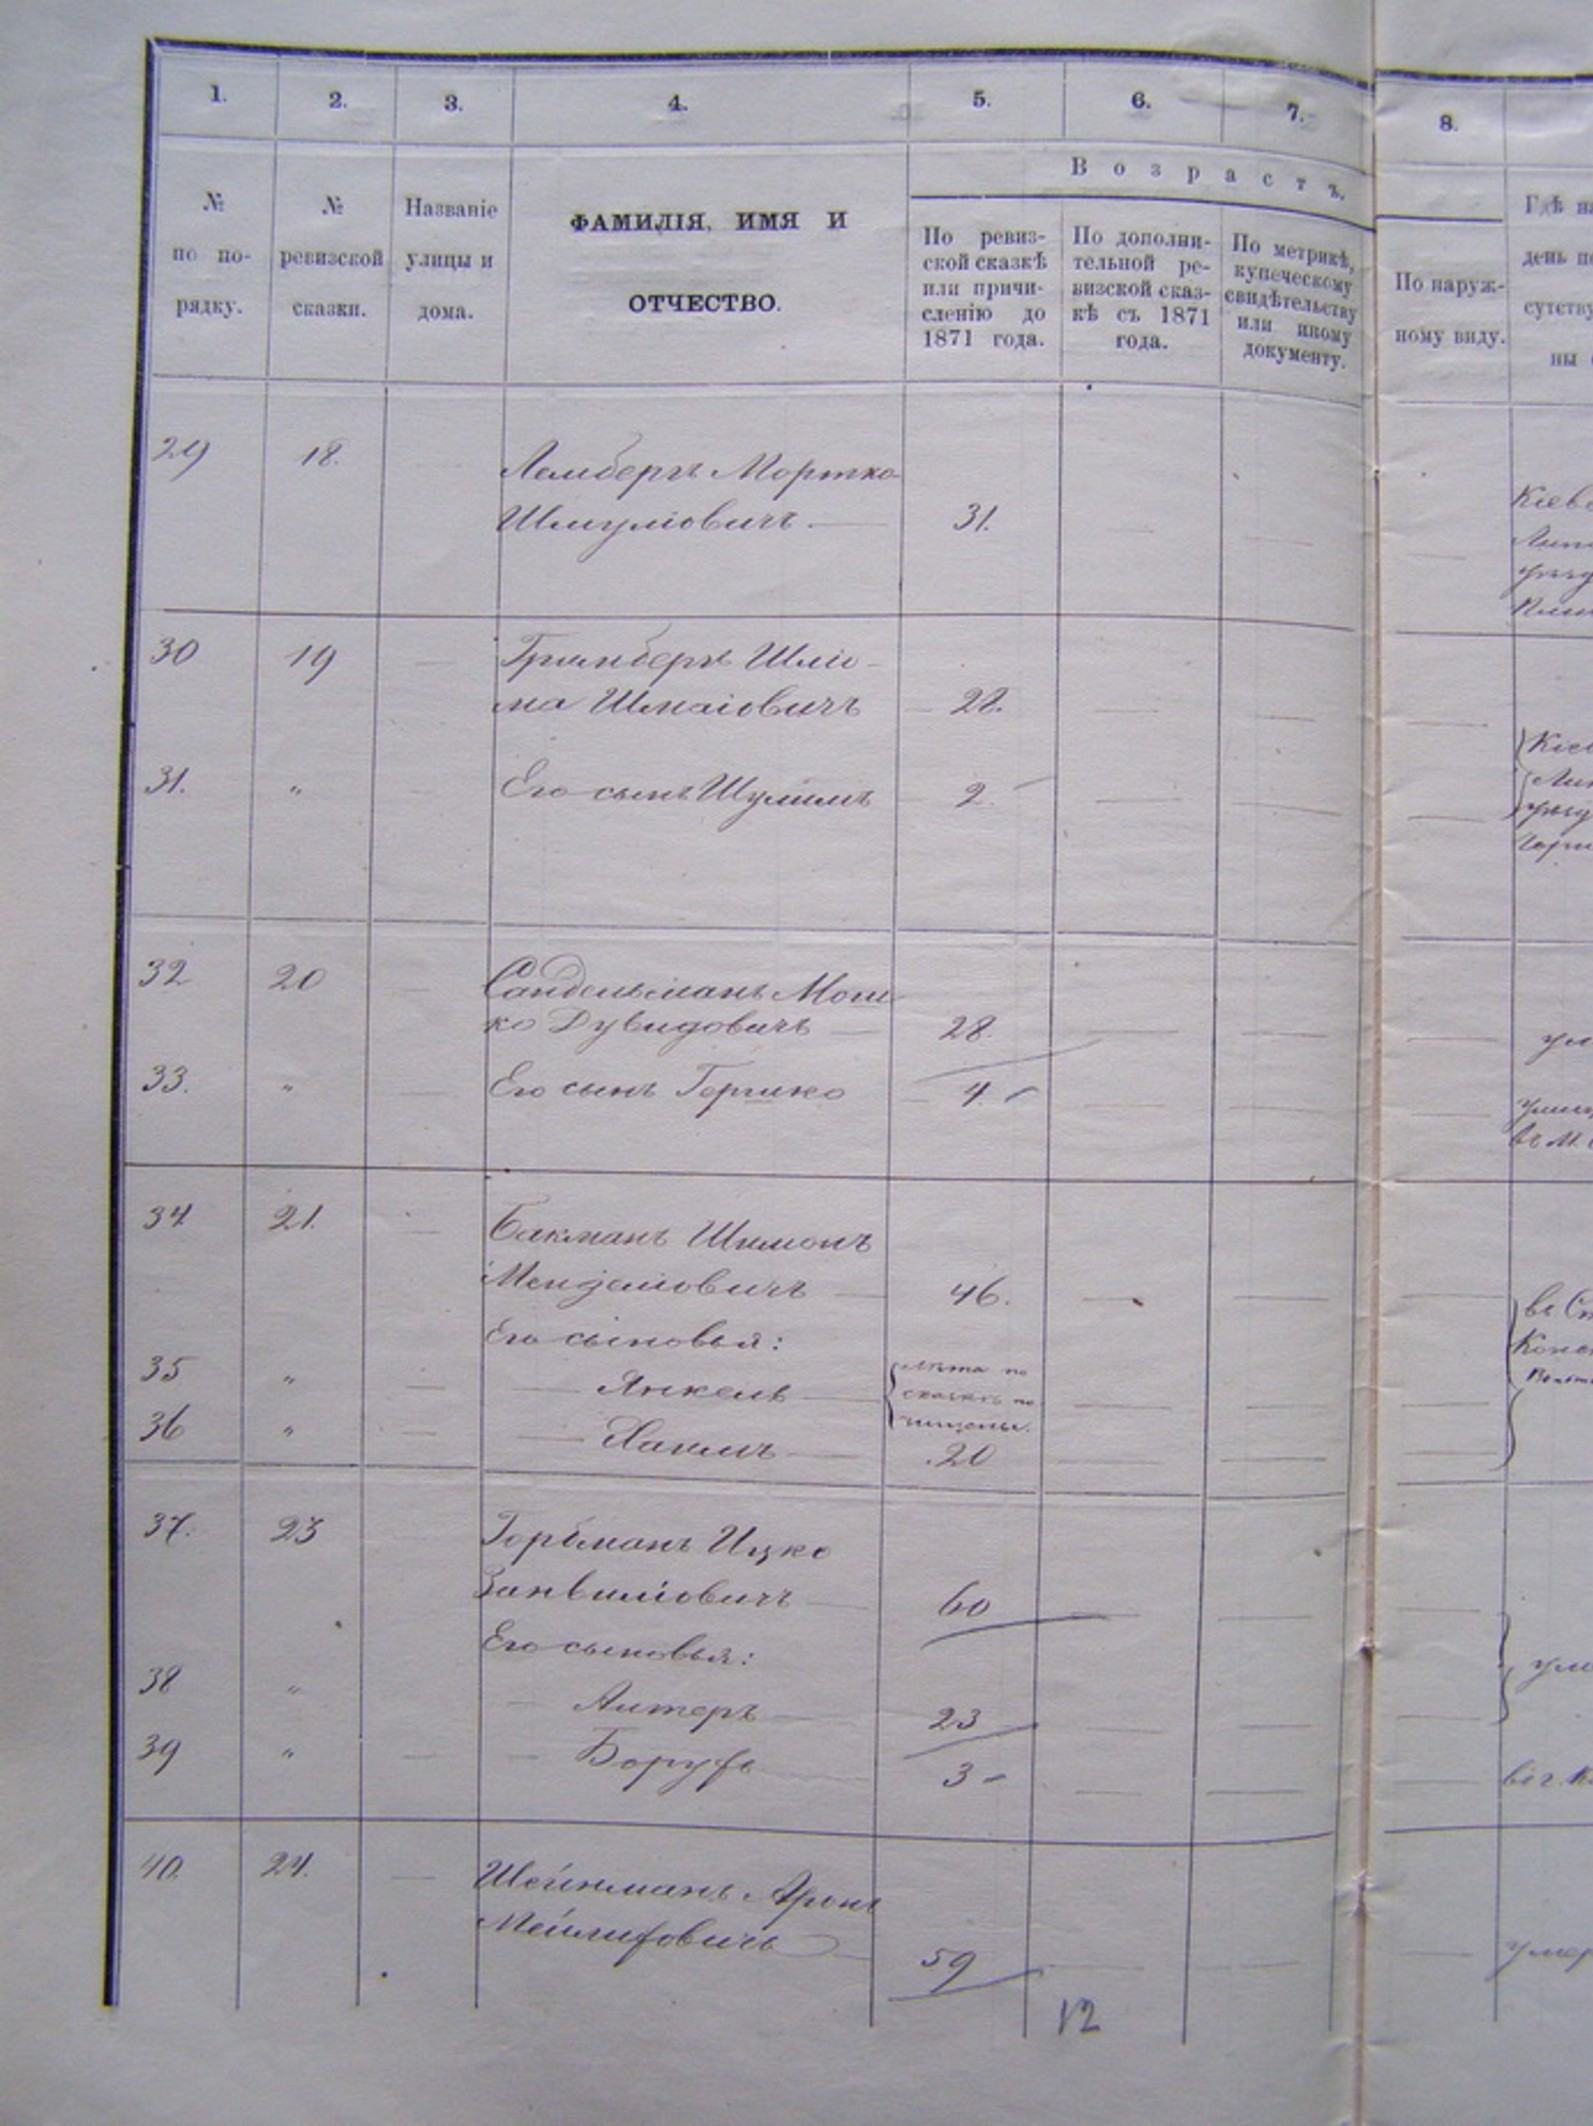 1. 2. 3. 4. 5. 6. 7. 8.
В о з р а с т ъ.
№ по по-рядку.
№ ревизской сказки.
Названіе улицы и дома.
ФАМИЛІЯ, ИМЯ И
ОТЧЕСТВО.
По ревиз-
ской сказкѣ
или причи-
сленію до
1871 года.
По дополни-
тельной ре-
визской сказ-
кѣ съ 1871
года.
По метрикѣ,
купеческому
свидѣтельству
или иному
документу.
По наруж-
ному виду.
Гдѣ на
день пе
сутству
ны
29 18. Лемберъ Мортко
Шмуліовичъ 31.
Кіевс
Лип
уѣзд
30 19 Гринберъ Шліо-
ма Шмаіовичъ 28.
31. " Его сынъ Шулимъ 2.
Кіев
Лип
уѣзд
32 20 Сандельманъ Мош
ко Дувидовичъ 28.
ум
33. " Его сынъ Гершко 4.
34 21. Бакманъ Шимонъ
Менделіовичъ 46.
Его сыновья:
35 " Янкель
лѣта по
сказкѣ по
36 " Хаимъ 20
37. 23 Горбманъ Ицко
Занвиліовичъ 60
Его сыновья:
38 " Алтеръ 23
ум
39 " Борухъ 3
40. 24. Шейнманъ Аронъ
Мейлиховичъ 59
умер
12